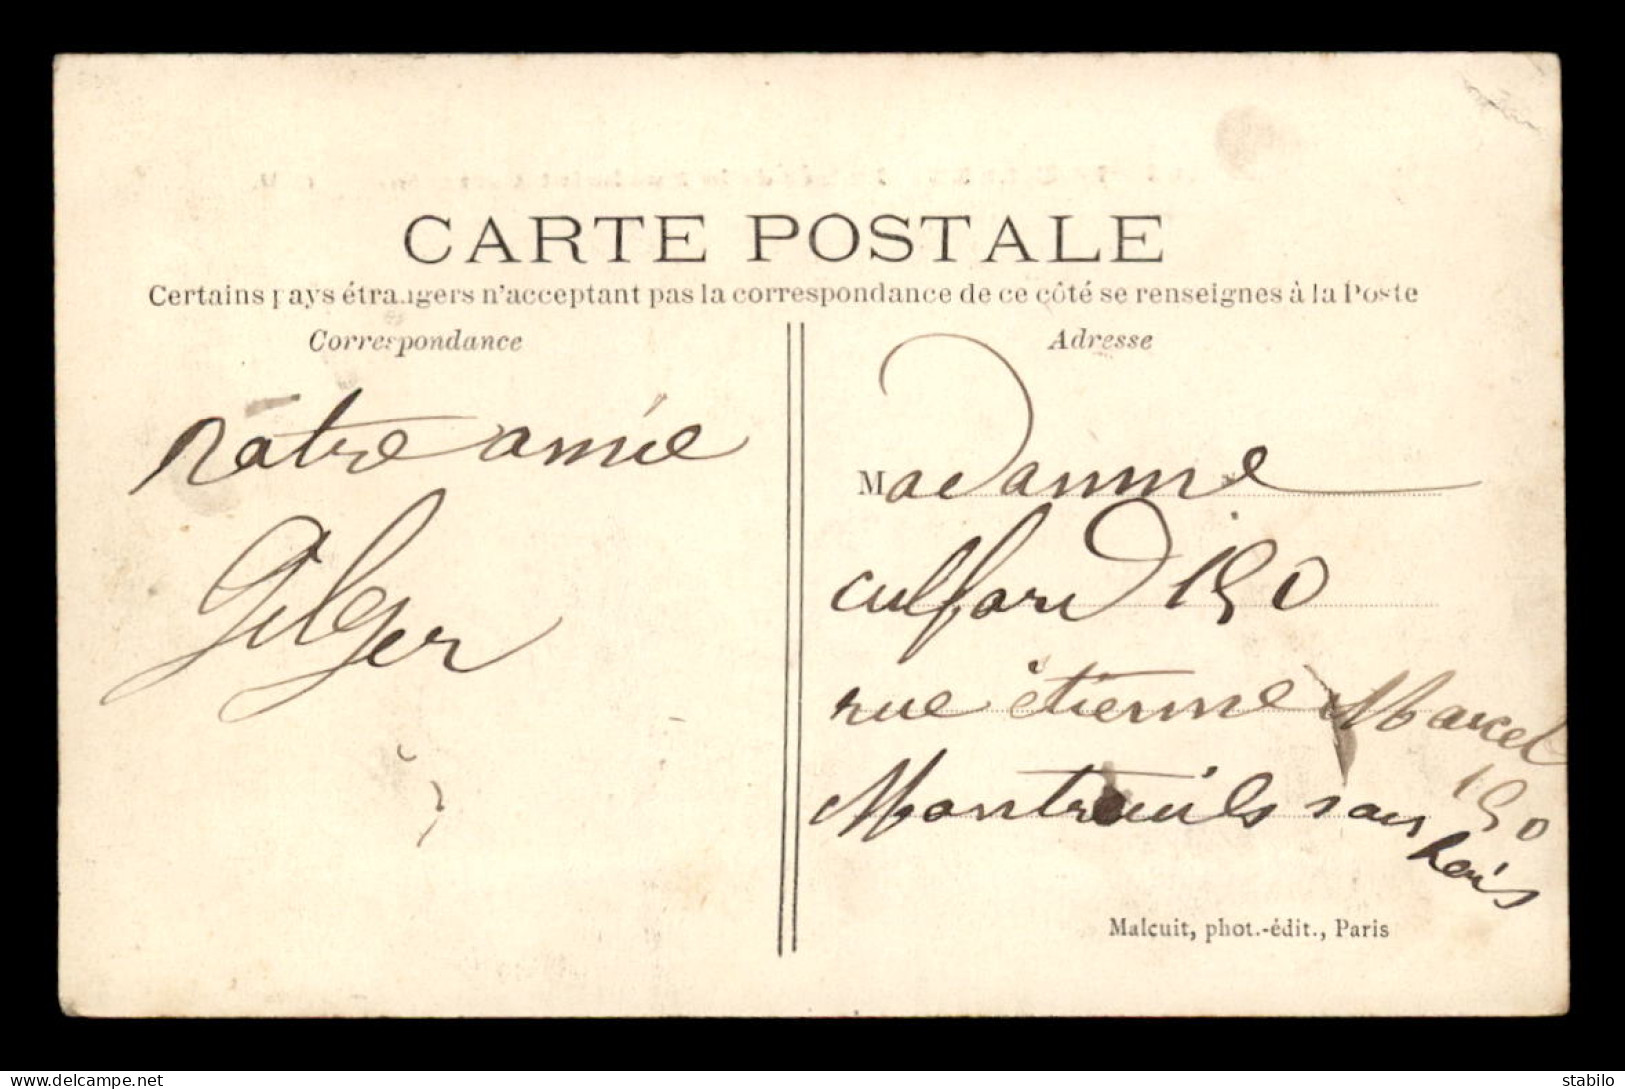 CARTE POSTALE
Certains pays étrangers n'acceptant pas la correspondance de ce côté se renseignes à la Poste
Correspondance
Adresse
nôtre amie
Gilger
Madamme
culfard 150
rue étienne Marcel
150
Montreuils sous
bois
Malcuit, phot.-édit., Paris
delcampe.net
stabilo